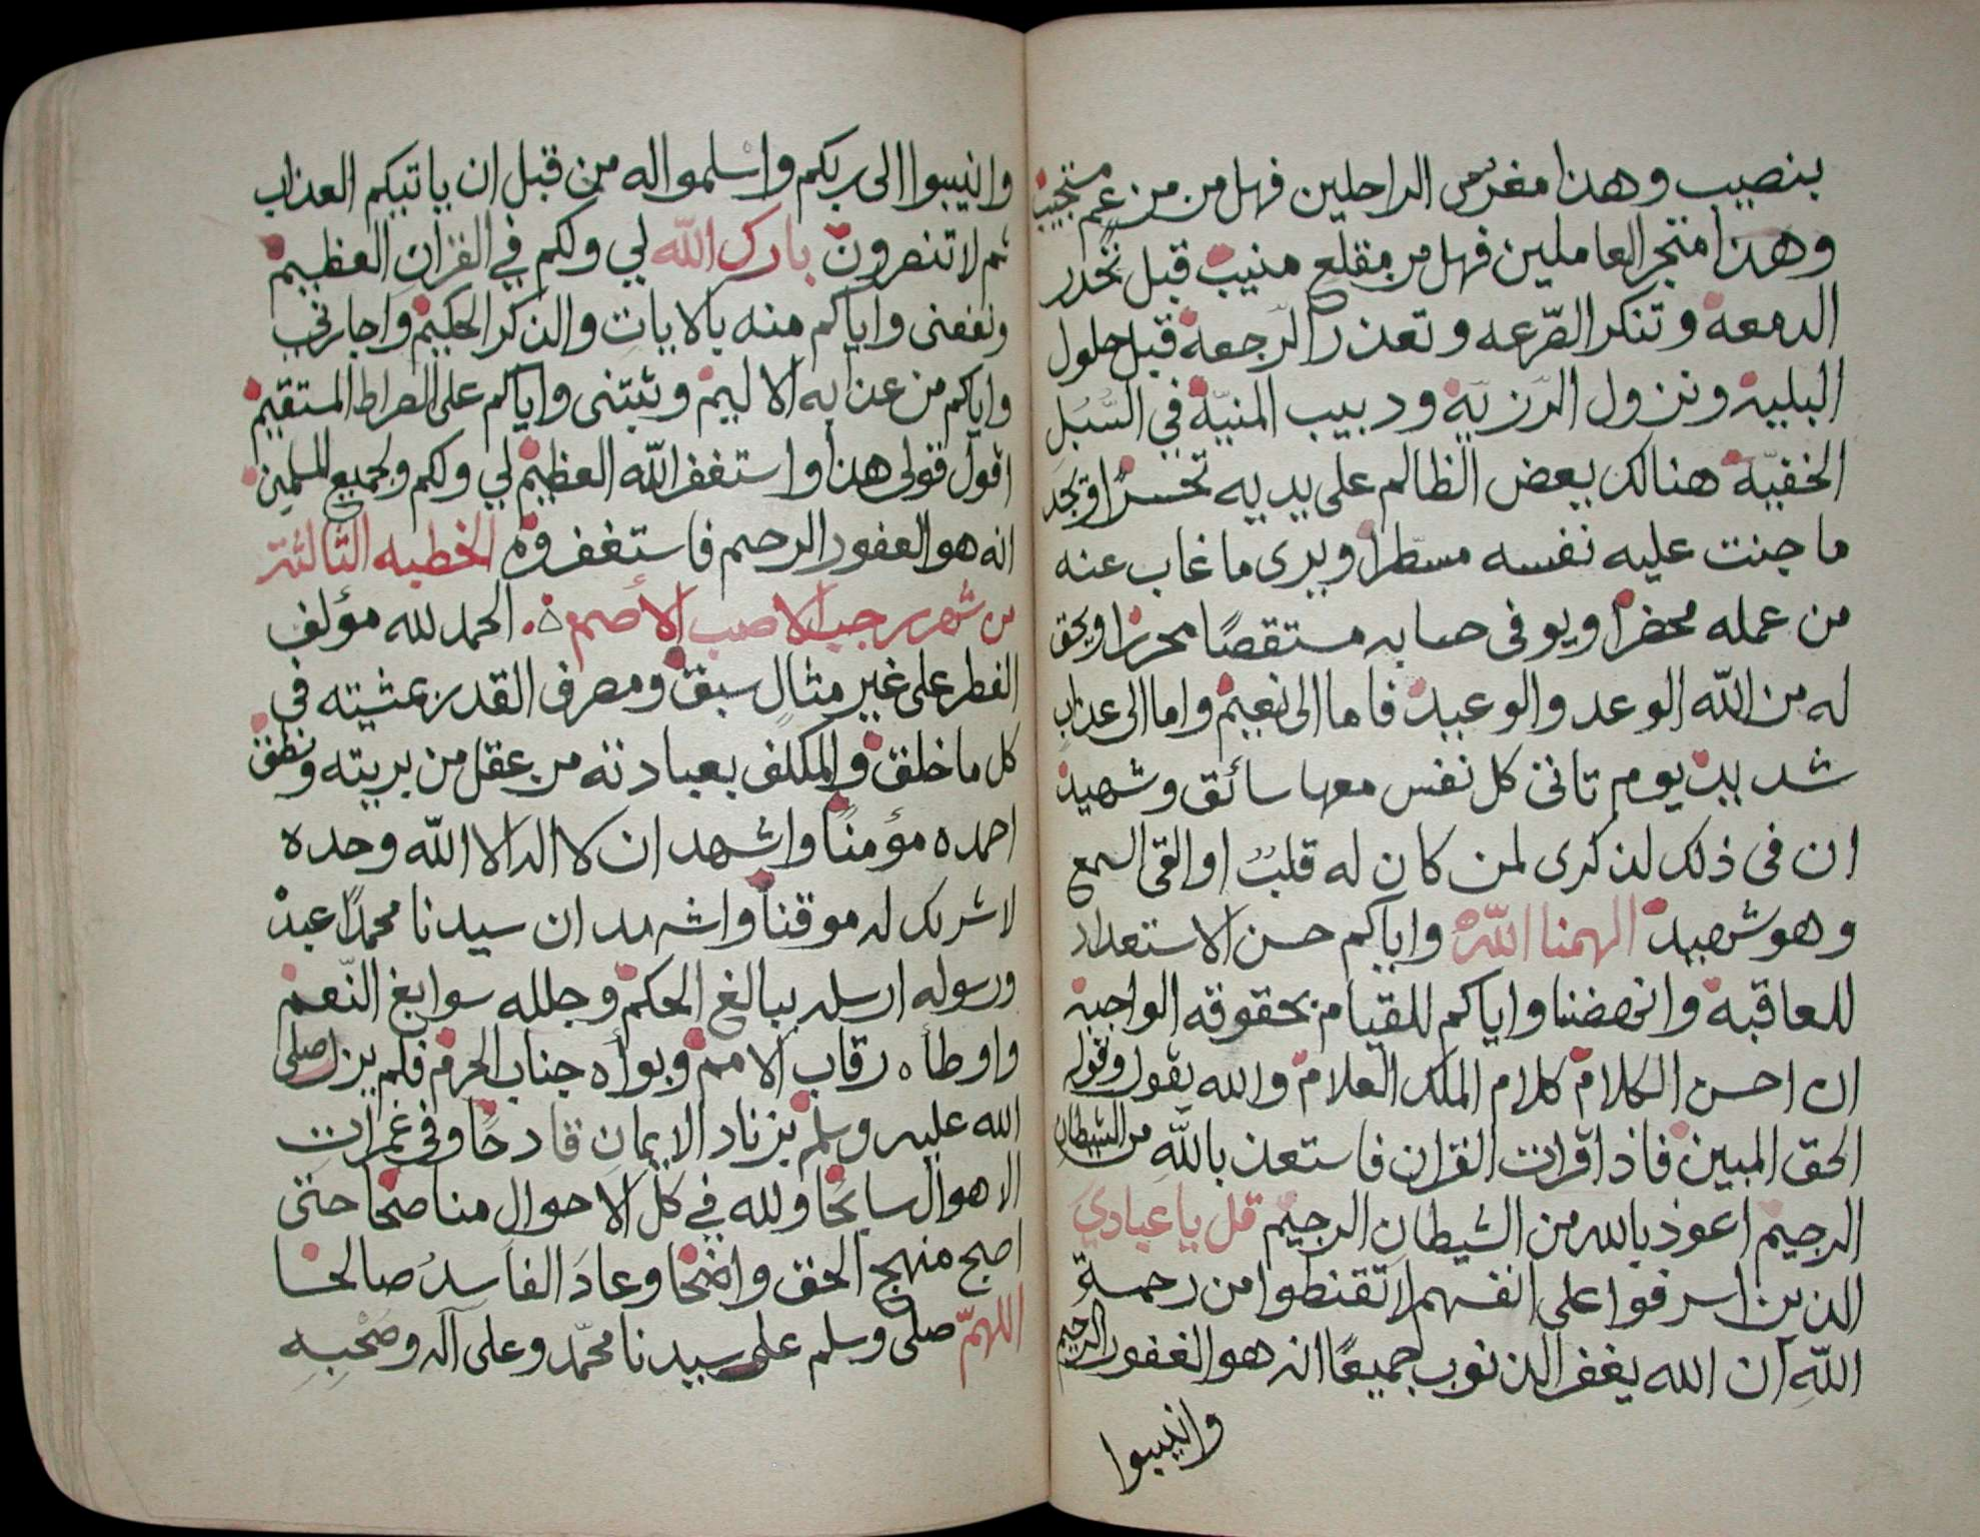 بنصيب وهذا مغرس الراحلين فهل من من عم مستجيب
وهذا متجر العاملين فهل من مقلع منيب قبل تحدر
الدمعة وتنكر الصّرعه وتعذر الرّجعة قبل حلول
البلية ونزول الرّزيّة ودبيب المنيّة في السُّبَل
الخفيّة هنالك يعض الظالم على يديه تحسرًا ويجد
ما جنت عليه نفسه مسطرا ويرى ما غاب عنه
من عمله محضرا ويوفى حسابه مستقصًا محررا ويحق
له من الله الوعد والوعيد فاما الى نعيم واما الى عذاب
شديد يوم تاتى كل نفس معها سائق وشهيد
ان فى ذلك لذكرى لمن كان له قلبٌ او القى السمع
وهو شهيد الهمنا الله واياكم حسن الاستعداد
للعاقبة وانهضنا واياكم للقيام بحقوقه الواجبة
ان احسن الكلام كلام الملك العلام والله يقول وقوله
الحق المبين فاذا قرات القران فاستعذ بالله من الشيطان
الرجيم اعوذ بالله من الشيطان الرجيم قل يا عبادي
الذين اسرفوا على انفسهم لا تقنطوا من رحمة
اللهِ ان الله يغفر الذنوب جميعًا انه هو الغفور الرحيم
وانيبوا
وانيبوا الى ربكم واسلموا اله من قبل ان ياتيكم العذاب
ثم لا تنصرون بارك الله لي ولكم في القران العظيم
ونفعنى واياكم منه بالايات والذكر الحكيم واجارنى
واياكم من عذابه الاليم وثبتنى واياكم على الصراط المستقيم
اقول قولى هذا واستغفر الله العظيم لي ولكم ولجميع المسلمين
انه هو الغفور الرحيم فاستغفروه الخطبه الثالثة
من شهر رجب الاصب الأصم ه الحمد لله مؤلف
الفطر على غير مثالٍ سبق ومصرف القدر بمشيته في
كل ما خلق والمكلف بعبادته من عقل من بريته ونطق
احمده مؤمنًا واشهد ان لا اله الا الله وحده
لا شريك له موقنا واشهد ان سيدنا محمدًا عبده
ورسوله ارسله ببالغ الحكم وجلله سوابغ النّعم
واوطأه رقاب الامم وبوأه جناب الحرم فلم يزل صلى
الله عليه وسلم بزناد الايمان قادحًا وفي غمرات
الاهوال سابحًا ولله في كل الاحوال مناصحا حتى
اصبح منهج الحق واضحا وعادَ الفاسدُ صالحا
اللهمّ صلى وسلم على سيدنا محمّد وعلى آله وصَحْبِهِ